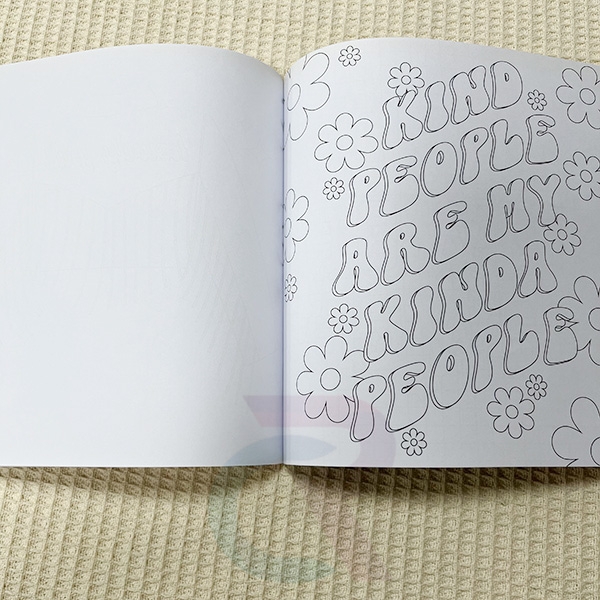 KIND
PEOPLE
ARE MY
KINDA
PEOPLE